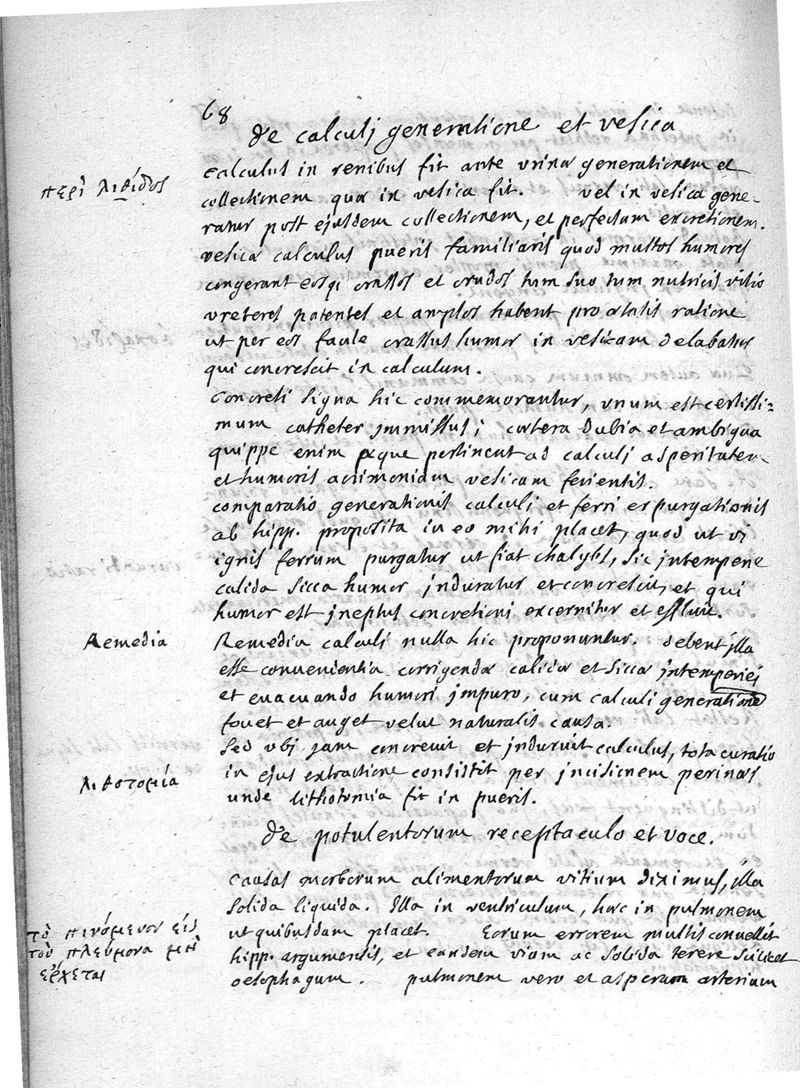 68
de calculi generatione et vesica
περὶ λιθίδος
calculus in renibus fit ante urinæ generationem et
collectionem quæ in vesica fit. vel in vesica gene-
ratur post ejusdem collectionem, et perfectam excretionem.
vesicæ calculus pueris familiaris quod multos humores
congerant eosq; crassos et crudos tum suo tum nutricis vitio
vreteres patentes et amplos habent pro ætatis ratione
ut per eos facile crassus humor in vesicam delabatur
qui concrescit in calculum.
concreti signa hic commemorantur, vnum est certissi-
mum catheter jmmissus; cætera dubia et ambigua
quippe enim æque pertinent ad calculi asperitatem
et humoris acrimoniam vesicam ferientis.
comparatio generationis calculi et ferri expurgationis
ab hipp. proposita in eo mihi placet, quod ut vi
ignis ferrum purgatur ut fiat chalybs, sic jntemperie
calida sicca humor jnduratur et concrescit, et qui
humor est jneptus concretioni excernitur et effluit.
Remedia
Remedia calculi nulla hic proponuntur. debent illa
esse convenientia corrigendæ calidæ et siccæ jntemperiei
et evacuando humori jmpuro, cum calculi generationem
fovet et auget velut naturalis causa.
Sed vbi jam concrevit et jnduruit calculus, tota curatio
λιθοτομία
in ejus extractione consistit per jncisionem perinæi
unde lithotomia fit in pueris.
de potulentorum receptaculo et voce.
causas morborum alimentorum vitium diximus, illa
solida liquida. Illa in ventriculum, hæc in pulmonem
τὸ πινόμενον εἰς
ut quibusdam placet. Eorum errorem multis convellit
τὸν πλεύμονα μὴ
hipp. argumentis, et eandem viam ac solida terere scilicet
ἔρχεται
oesophagum. pulmonem vero et asperam arteriam